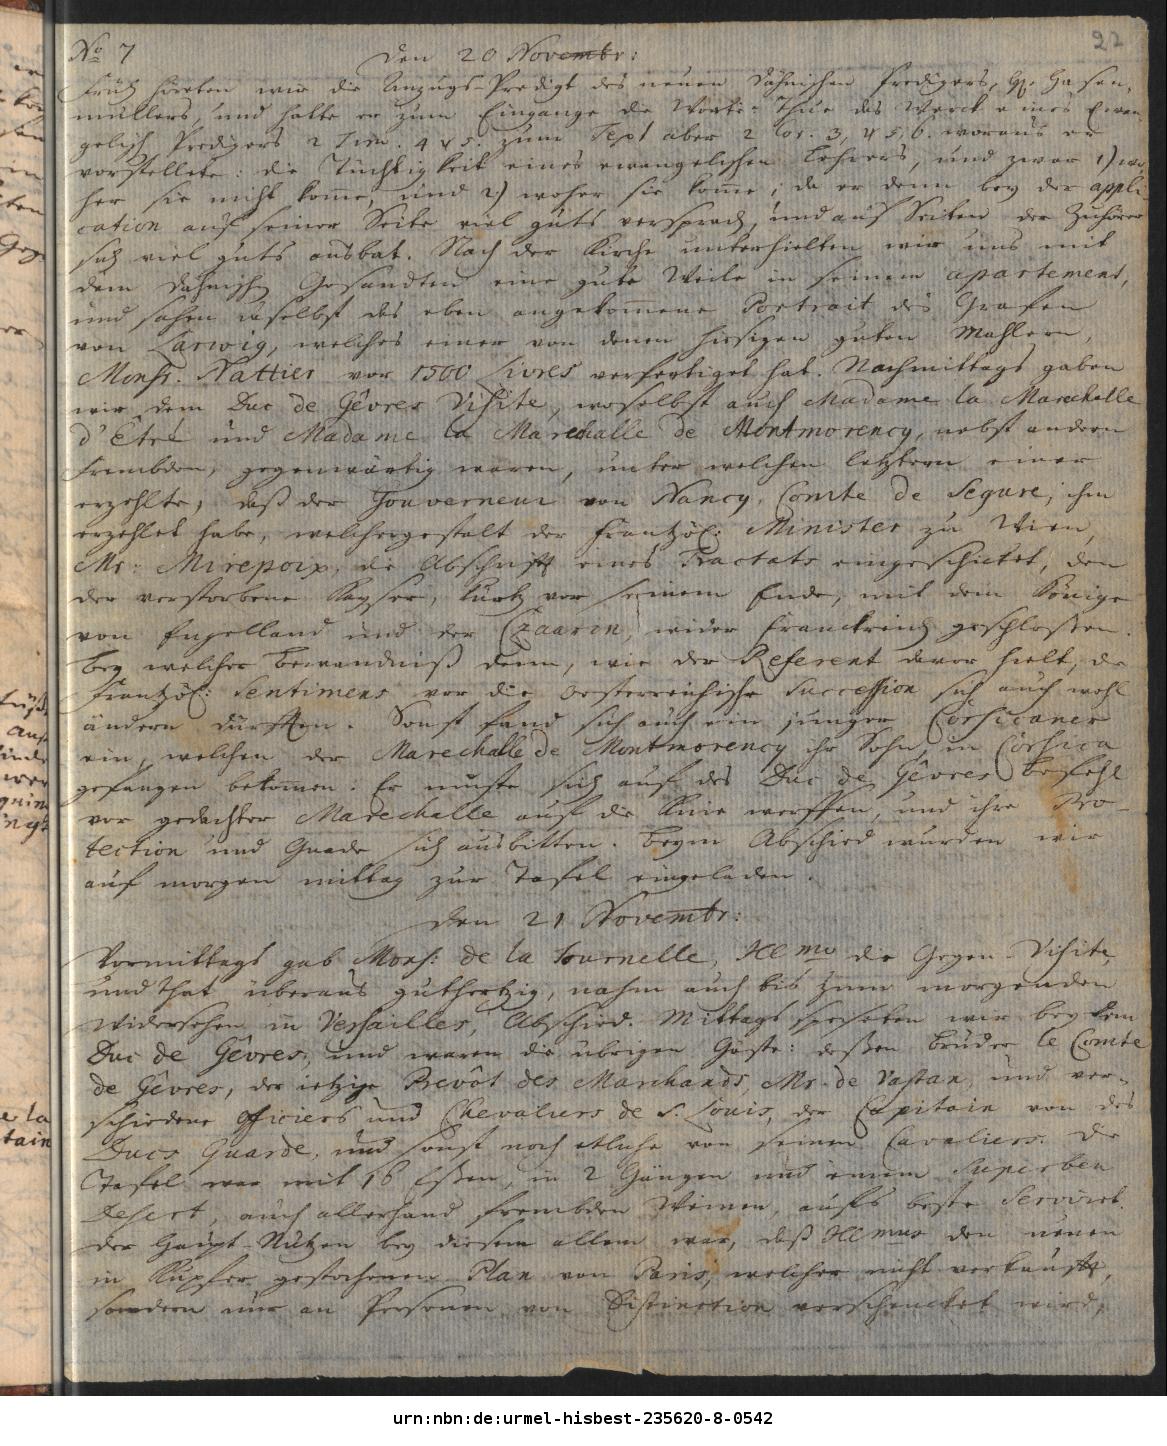 22
No 7 den 20 Novembr:
Früh höreten wir die Anzugs-Predigt des neuen Dähnischen Predigers, H. Hasen,
müllers, und hatte er zum Eingange die Worte: Thue das Werck eines Evan,
gelisch Predigers 2 Tim. 4 v 5. zum Text aber 2 Cor. 3, 4 5, 6. woraus er
vorstellete: die Tüchtigkeit eines evangelischen Lehrers, und zwar 1) wo,
her sie nicht kome, und 2) woher sie kome; da er denn bey der appli
cation auf seiner Seite viel guts versprach, und auf Seiten der Zuhörer
sich viel guts ausbat. Nach der Kirche unterhielten wir uns mit
dem Dähnisch Gesandten eine gute Weile in seinem apartement,
und sahen daselbst das eben angekomene Portrait des Grafen
von Larwig, welches einer von denen hiesigen guten Mahlern,
Monsr. Nattier vor 1500 Livres verfertiget hat. Nachmittags gaben
wir dem Duc de Gêvres Visite, woselbst auch Madame la Marechalle
d'Etré und Madame la Marechalle de Montmorency, nebst andern
frembden, gegenwärtig waren, unter welchen letztern einer
erzehlte, daß der Gouverneur von Nancy, Comte de Segure, ihm
erzehlet habe, welchergestalt der Frantzös: Minister zu Wien,
Mr: Mirepoix, die Abschrifft eines Tractats eingeschicket, den
der verstorbene Kayser, kurtz vor seinem Ende, mit dem Könige
von Engelland und der Czaarin, wider Franckreich geschloßen.
bey welcher bewandniß denn, wie der Referent davor hielt, die
Frantzös: Sentimens vor die oesterreichische Succession sich auch wohl
ändern dürfften. Sonst fand sich auch ein junger Corsicaner
ein, welchen der Marechalle de Montmorency ihr Sohn, in Corsica
gefangen bekomen. Er muste sich auf des Duc de Gêvres befehl
vor gedachter Marechalle auf die Knie werffen, und ihre Pro-
tection und Gnade sich ausbitten. Beym Abschied wurden wir
auf morgen mittag zur Tafel eingeladen.
den 21 Novembr:
Vormittags gab Mons: de la Tournelle, Ill mo die Gegen-Visite,
und that überaus guthertzig, nahm auch bis zum morgenden
widersehen in Versailles, Abschied. Mittags speiseten wir bey dem
Duc de Gêvres, und waren die übrigen Gäste: deßen Bruder le Comte
de Gêvres, der ietzige Prevôt des Marchands, Mr. de Vastan, und ver-
schiedene officiers und Chevaliers de S. Louis, der Capitain von des
Ducs Guarde, und sonst noch etliche von seinen Cavaliers. Die
Tafel war mit 16 Eßen, in 2 Gängen und einem superben
Desert, auch allerhand frembden Weinen, aufs beste Serviret.
der Haupt-Nutzen bey diesem allem war, daß Illmus den neuen
in Kupfer gestochenen Plan von Paris, welcher nicht verkaufft,
sondern nur an Personen von Distinction verschencket wird,
urn:nbn:de:urmel-hisbest-235620-8-0542